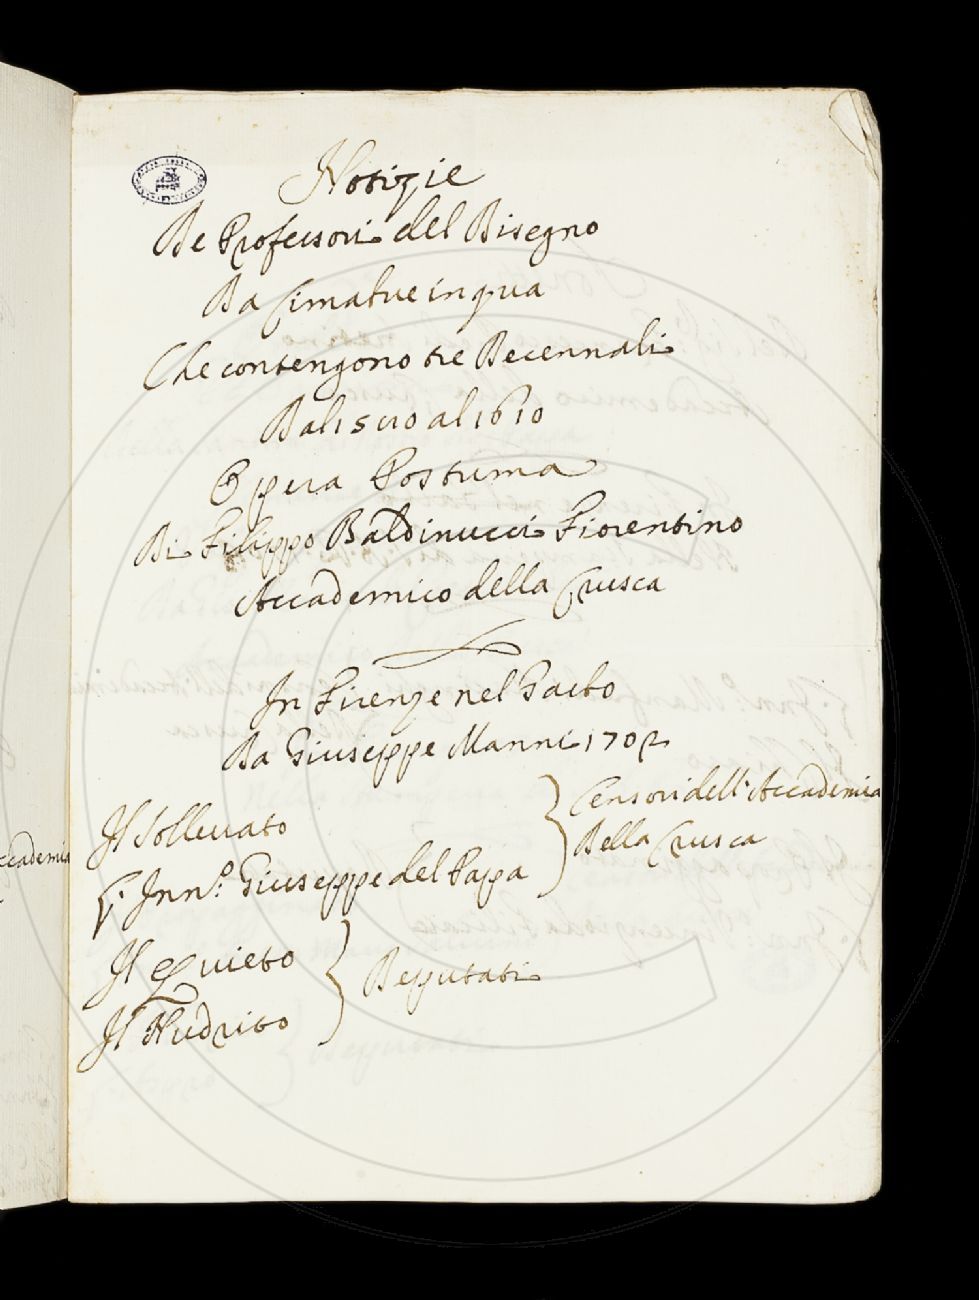 Notizie
De Professori del Disegno
Da Cimabue in qua
Che contengono tre Decennali
Dal 1580 al 1610
Opera Postuma
Di Filippo Baldinucci Fiorentino
Accademico della Crusca
In Firenze nel Garbo
Da Giuseppe Manni 1702
Il Sollevato
S. Inn.º Giuseppe del Papa
Censori dell' Accademia
Della Crusca
Il Quieto
Il Nudrito
Deputati